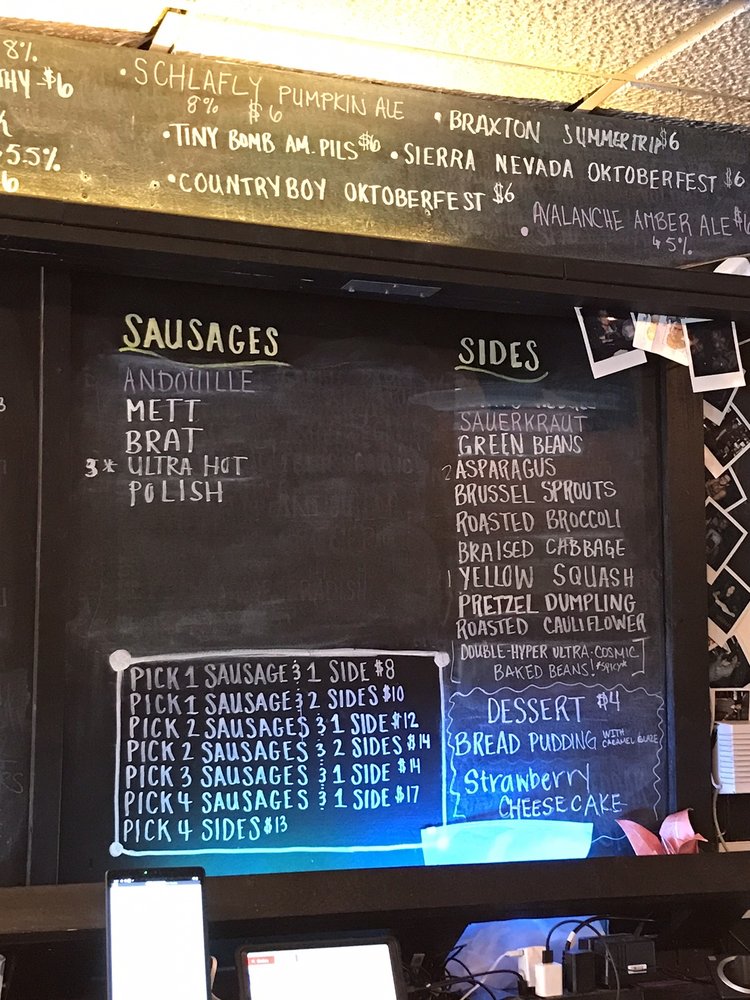 8%
THY $6
5.5%
6
• SCHLAFLY PUMPKIN ALE
8% $6
• TINY BOMB AM. PILS $6
• COUNTRYBOY OKTOBERFEST $6
• BRAXTON SUMMERTRIP $6
• SIERRA NEVADA OKTOBERFEST $6
• AVALANCHE AMBER ALE $6
4.5%
SAUSAGES
ANDOUILLE
METT
BRAT
3* ULTRA HOT
POLISH
PICK 1 SAUSAGE & 1 SIDE $8
PICK 1 SAUSAGE & 2 SIDES $10
PICK 2 SAUSAGES & 1 SIDE $12
PICK 2 SAUSAGES & 2 SIDES $14
PICK 3 SAUSAGES & 1 SIDE $14
PICK 4 SAUSAGES & 1 SIDE $17
PICK 4 SIDES $13
SIDES
SAUERKRAUT
GREEN BEANS
2 ASPARAGUS
BRUSSEL SPROUTS
ROASTED BROCCOLI
BRAISED CABBAGE
YELLOW SQUASH
PRETZEL DUMPLING
ROASTED CAULIFLOWER
DOUBLE-HYPER ULTRA-COSMIC
BAKED BEANS! *SPICY*
DESSERT $4
BREAD PUDDING WITH CARAMEL GLAZE
Strawberry
CHEESECAKE